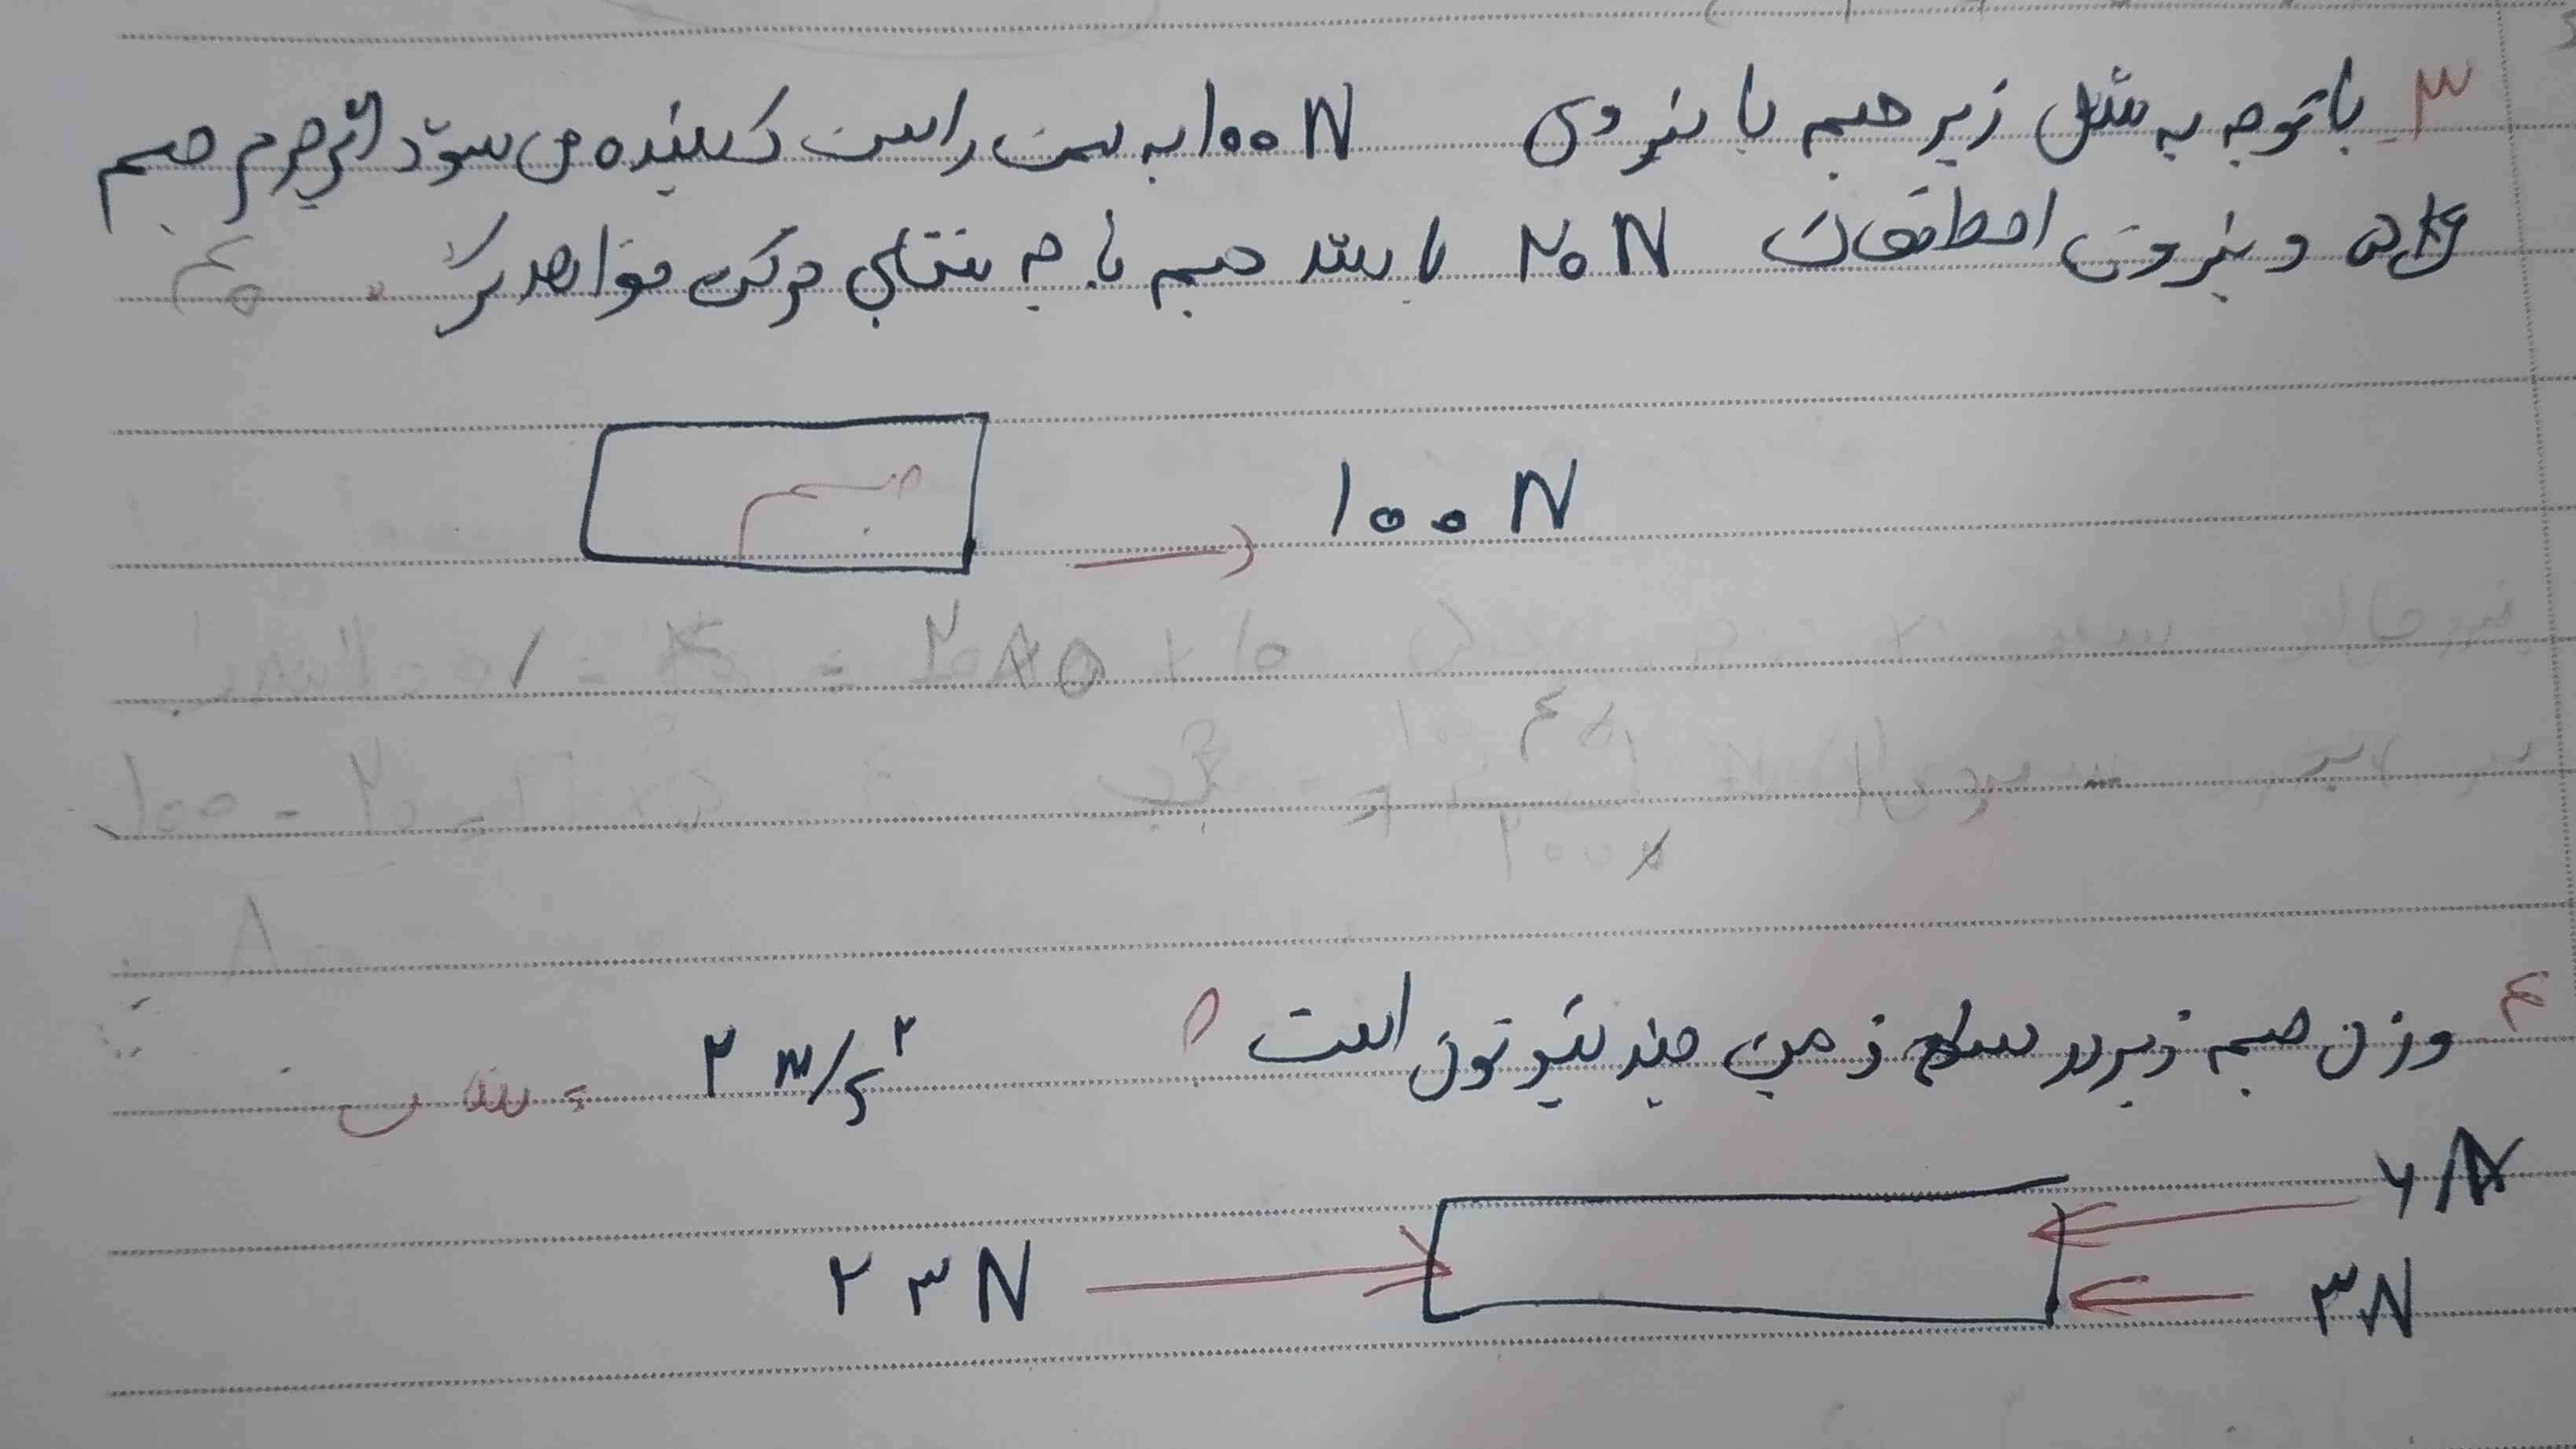 ۳- با توجه به شکل زیر جسم با نیروی ۱۰۰ N به سمت راست کشیده می شود اگر جرم جسم
۵ kg و نیروی اصطکاک ۲۰ N باشد جسم با چه شتابی حرکت خواهد کرد
جسم
۱۰۰ N
۱۰۰ - ۲۰ =
۴ وزن جسم زیر در سطح زمین چند نیوتون است ؟ ۲ m/s۲ = شتاب
۶ N
۲۳ N
۳ N